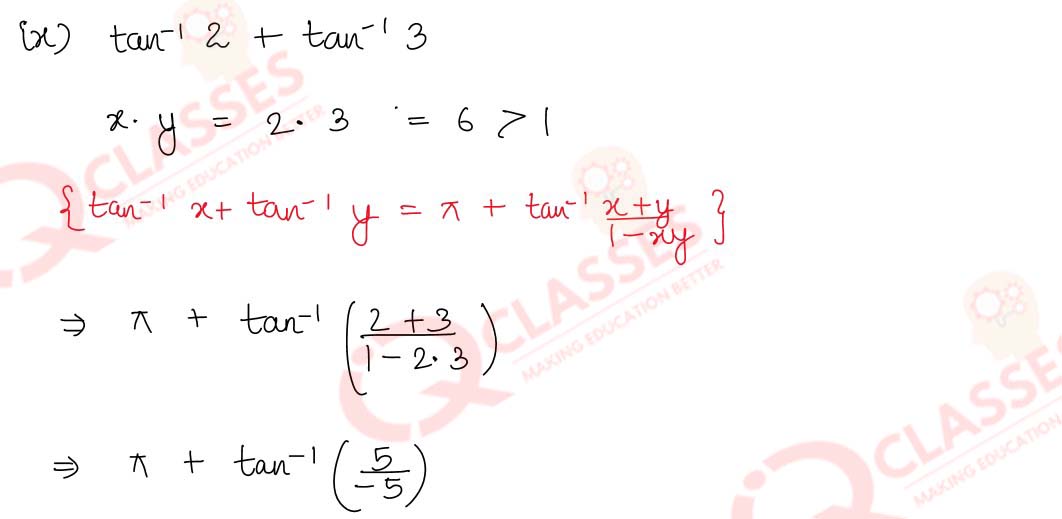 (x) tan⁻¹ 2 + tan⁻¹ 3
x. y = 2. 3 = 6 > 1
{tan⁻¹ x + tan⁻¹ y = π + tan⁻¹ x+y / 1-xy}
⇒ π + tan⁻¹ (2+3 / 1-2.3)
⇒ π + tan⁻¹ (5 / -5)
CLASSES
MAKING EDUCATION BETTER
CLASSES
MAKING EDUCATION BETTER
CLASSES
MAKING EDUCATION